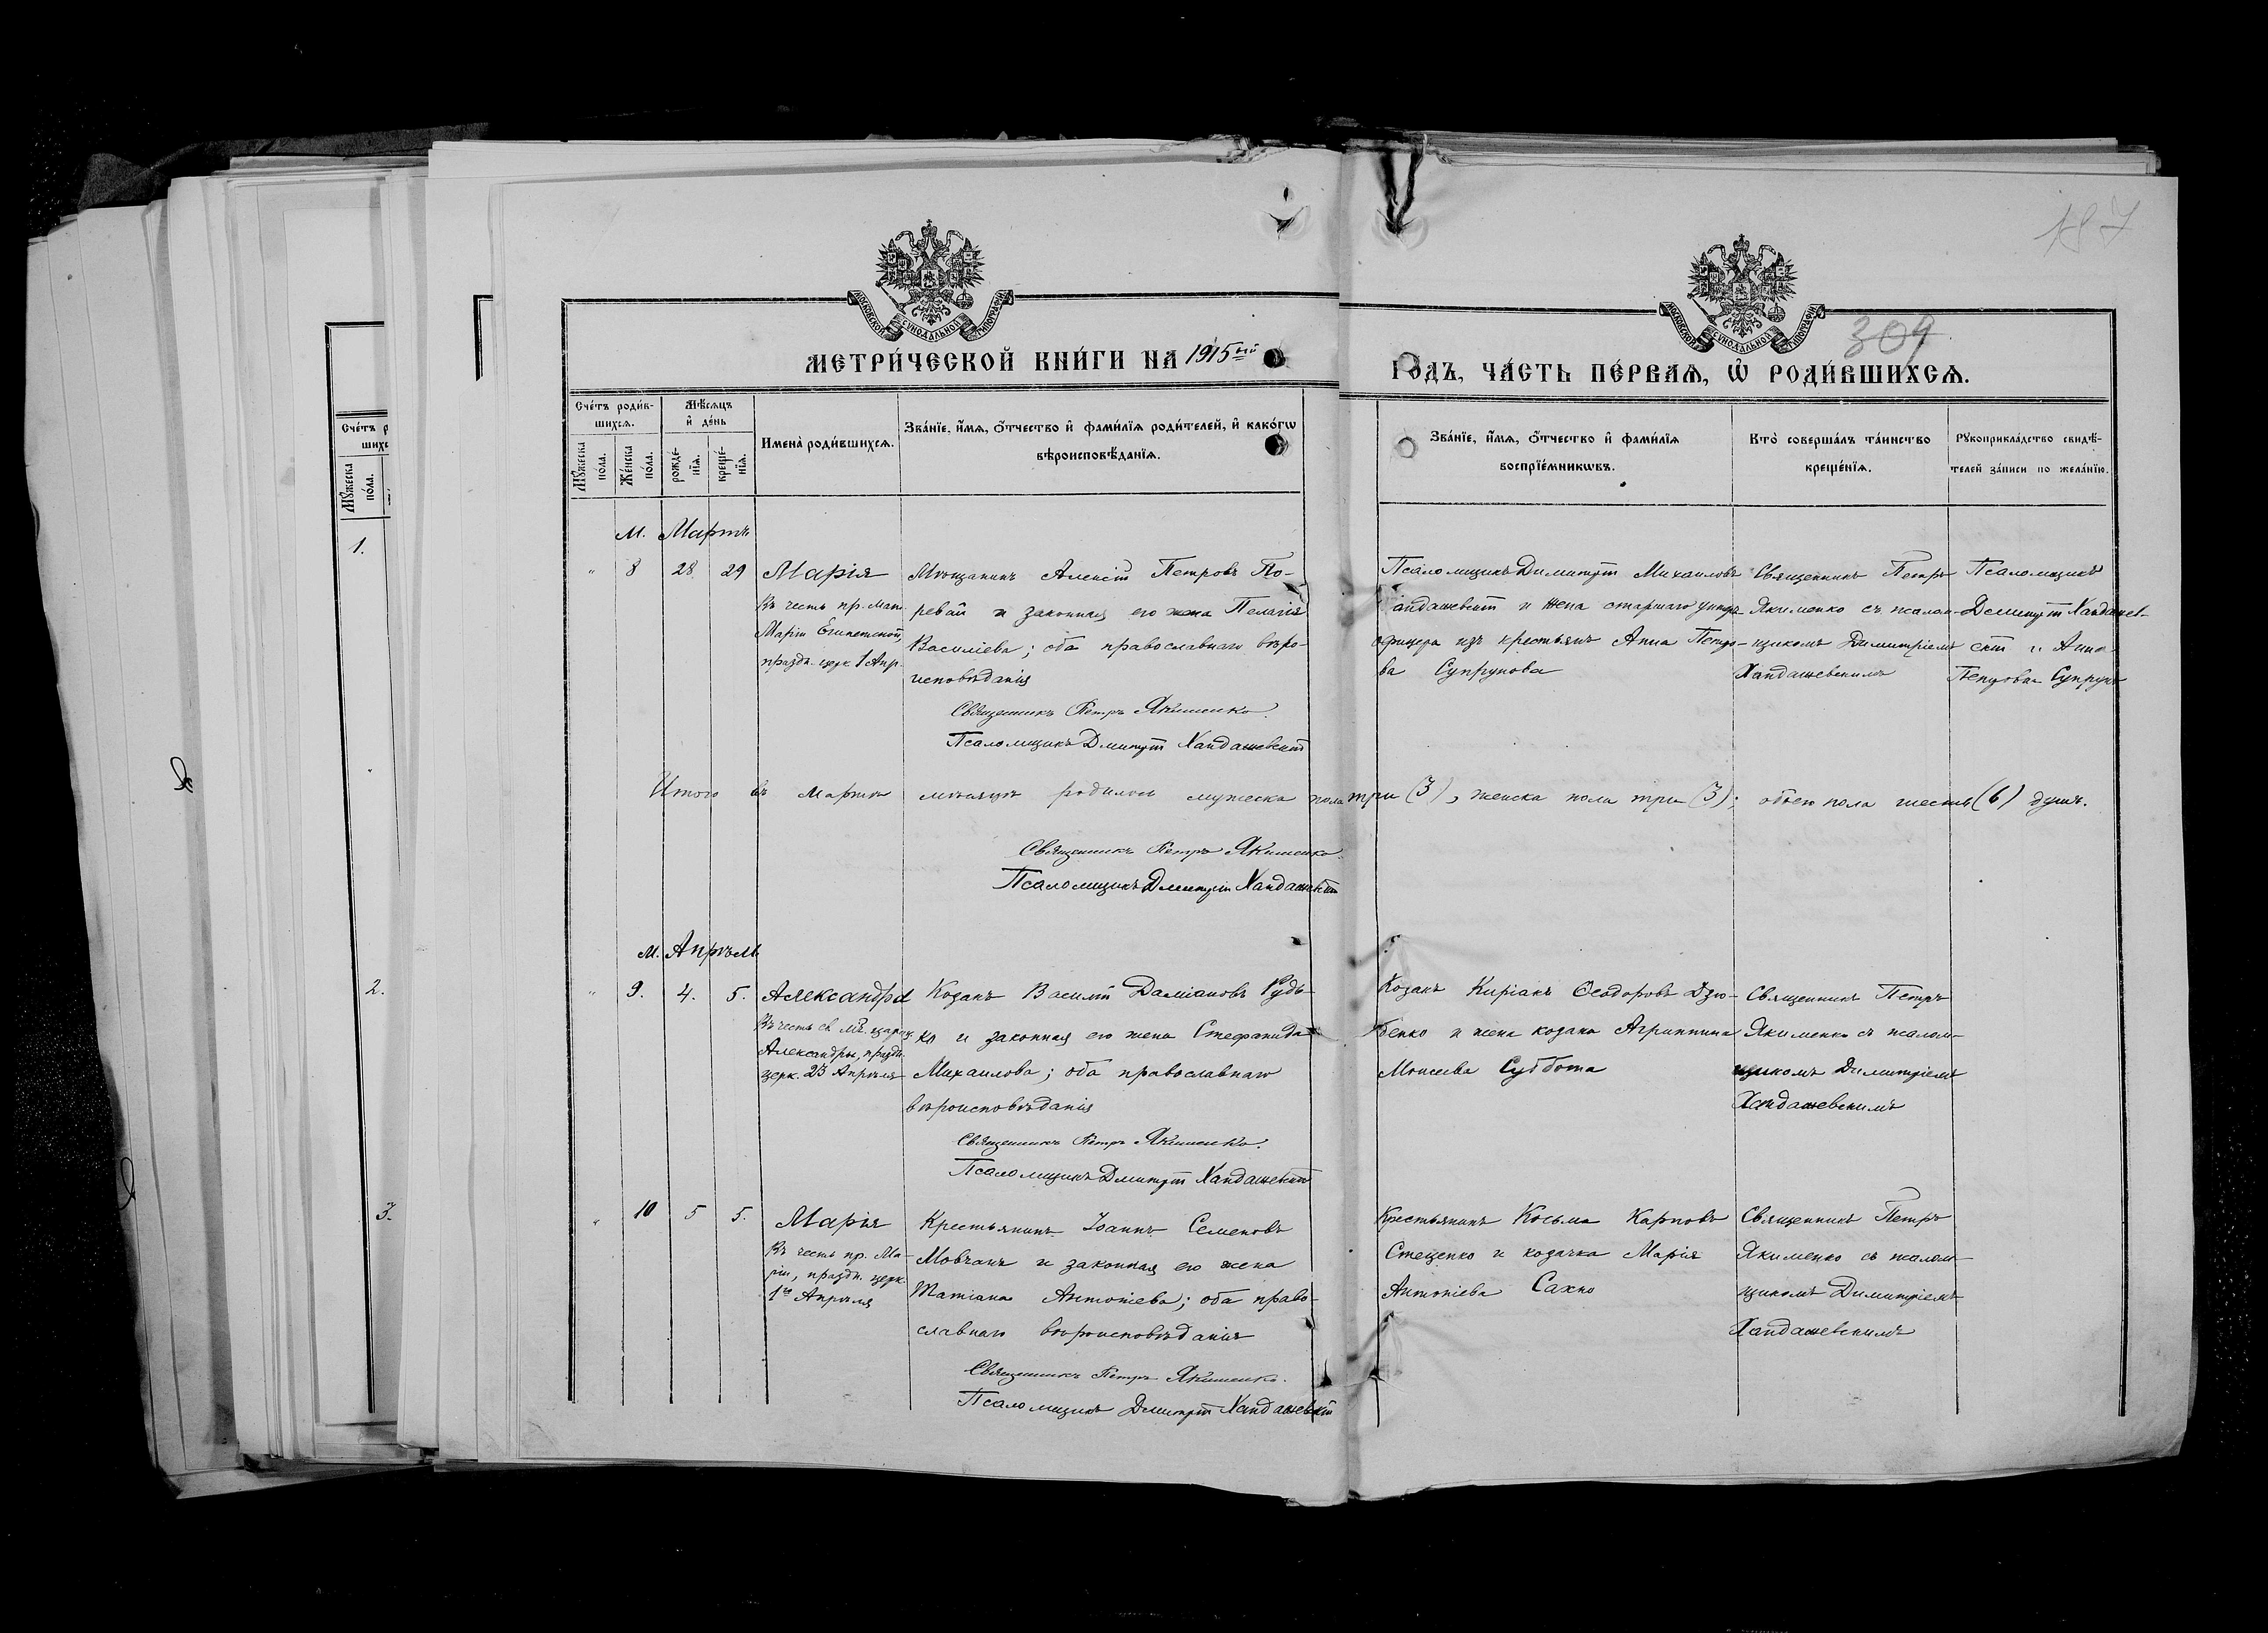 187
309
МОСКОВСКОЙ СУНОДАЛЬНОЙ ТИПОГРАФІИ
МОСКОВСКОЙ СУНОДАЛЬНОЙ ТИПОГРАФІИ
МЕТРИ́ЧЕСКОЙ КНИ́ГИ НА 1915ый
ГОДЪ, ЧА́СТЬ ПЕ́РВАѦ, Ѡ РОДИ́ВШИХСѦ.
Сче́тъ роди́в-
шихсѧ.
Мꙋ́жеска
по́ла.
Же́нска
по́ла.
Мѣ́сѧцъ
и҆ де́нь
рожде́-
нїѧ.
креще́-
нїѧ.
Имена̀ роди́вшихсѧ.
Зва́нїе, и҆́мѧ, ѻ҆́тчество и҆ фами́лїѧ роди́телей, и҆ како́гѡ
вѣроисповѣ́данїѧ.
Зва́нїе, и҆́мѧ, ѻ҆́тчество и҆ фами́лїѧ
воспрїе́мникѡвъ.
Кто̀ соверша́лъ та́инство
креще́нїѧ.
Рꙋкоприкла́дство свидѣ́-
телей за́писи по жела́нїю.
Сче́тъ р
шихс
Мꙋ́жеска
по́ла.
1.
2.
3.
М. Мартъ
" 8 28 29 Марія
Въ честь пр. мат.
Маріи Египетской,
праздн. церк. 1 Апр.
Мѣщанинъ Алексій Петровъ По-
ревай и законная его жена Пелагія
Василіева; оба православнаго вѣро-
исповѣданія
Священникъ Петръ Якименко.
Псаломщикъ Дмитрій Хандашевскій
Псаломщикъ Димитрій Михаиловъ
Хандашевскій и жена старшаго унтеръ-
офицера изъ крестьянъ Анна Петро-
ва Супрунова
Священникъ Петръ
Якименко съ псалом-
щикомъ Димитріемъ
Хандашевскимъ
Псаломщикъ
Дмитрій Хандашев-
скій и Анна
Петрова Супрунъ
Итого въ Мартѣ мѣсяцѣ родилось мужеска пола три (3), женска пола три (3); обоего пола шесть (6) душъ.
Священникъ Петръ Якименко.
Псаломщикъ Дмитрій Хандашевскій
М. Апрѣль
" 9. 4. 5. Александра
Въ честь св. мч. цариц.
Александры, праздн.
церк. 23 Апрѣля
Козакъ Василій Даміановъ Рудь-
ко и законная его жена Стефанида
Михаилова; оба православнаго
вѣроисповѣданія
Священникъ Петръ Якименко.
Псаломщикъ Дмитрій Хандашевскій
Козакъ Киріакъ Ѳеодоровъ Дзю-
бенко и жена козака Агриппина
Моисеева Суббота
Священникъ Петръ
Якименко съ псалом-
щикомъ Димитріемъ
Хандашевскимъ
" 10 5 5. Марія
Въ честь пр. Ма-
ріи, праздн. церк.
1го Апрѣля
Крестьянинъ Іоаннъ Семеновъ
Мовчанъ и законная его жена
Татіана Антоніева; оба право-
славнаго вѣроисповѣданія
Священникъ Петръ Якименко.
Псаломщикъ Дмитрій Хандашевскій
Крестьянинъ Косьма Карповъ
Стеценко и козачка Марія
Антоніева Сахно
Священникъ Петръ
Якименко съ псалом-
щикомъ Димитріемъ
Хандашевскимъ